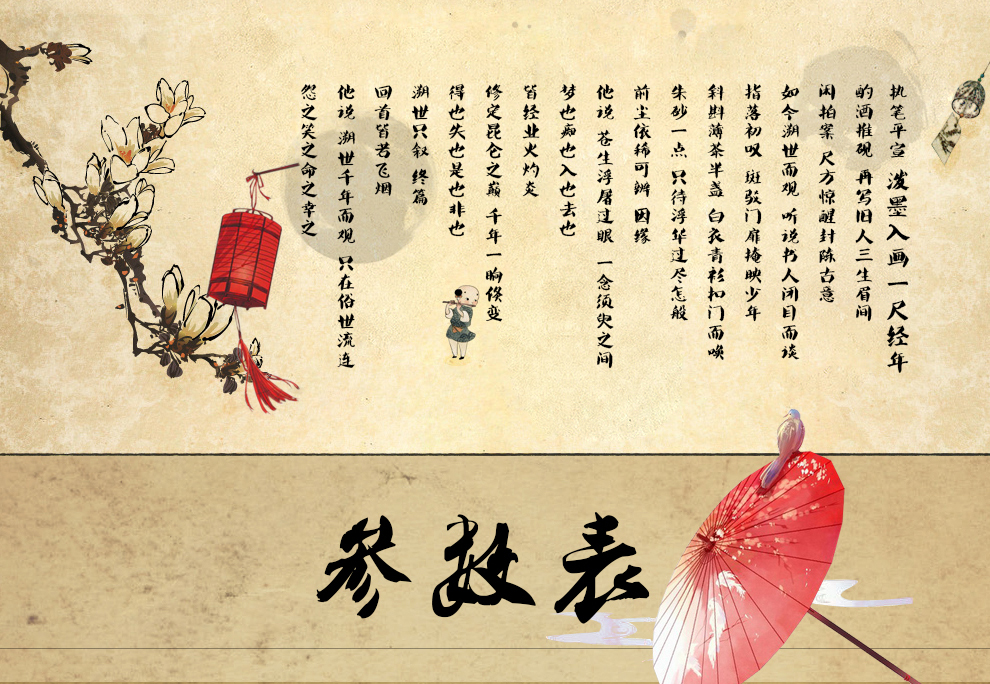 执笔平宣 泼墨入画一尺经年
酌酒推砚 再写旧人三生眉间
闲拍案 尺方惊醒封陈古意
如今溯世而观 听说书人闭目而谈
指落初叹 斑驳门扉掩映少年
斜斟薄茶半盏 白衣青衫扣门而唤
朱砂一点 只待浮华过尽怎般
前尘依稀可辨 因缘
他说 苍生浮屠过眼 一念须臾之间
梦也痴也入也去也
皆经业火灼炎
修定昆仑之巅 千年一晌倏变
得也失也是也非也
溯世只叙 终篇
回首皆若飞烟
他说 溯世千年而观 只在俗世流连
怨之笑之命之幸之
参数表